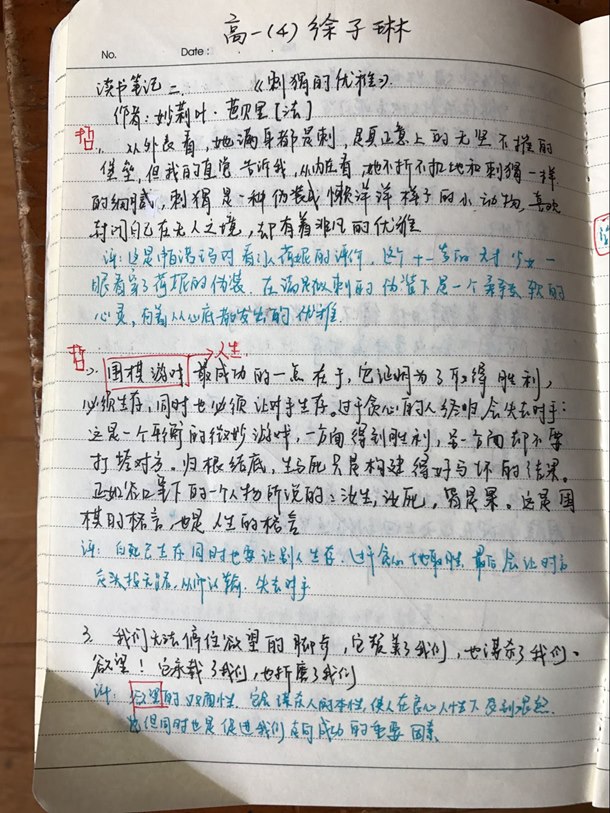 高一(4) 徐子琳
No.
Date:
读书笔记二 《刺猬的优雅》
作者:妙莉叶·芭贝里[法]
哲
1. 从外表看,她满身都是刺,是真正意上的无坚不摧的
堡垒,但我的直觉告诉我,从内在看,她不折不扣地和刺猬一样
的细腻,刺猬是一种伪装成懒洋洋样子的小动物,喜欢
封闭自己在无人之境,却有着非凡的优雅
评:这是帕洛玛对看门人荷妮的评价,这个十一岁的天才少女一
眼看穿了荷妮的伪装.在满是
的伪装下是一个柔软的
心灵,有着从心底散发出的优雅.
哲
人生
2. 围棋游戏最成功的一点在于,它证明为了取得胜利,
必须生存,同时也必须让对手生存。过于贪心的人终归会失去对手:
这是一个平衡的微妙游戏,一方面得到胜利,另一方面却不要
打垮对方。归根结底,生与死只是构建得好与坏的结果。
正如谷口笔下的一个人物所说的:汝生,汝死,皆是果。这是围
棋的格言,也是人生的格言
评:自己生存同时也要让别人生存.过于贪心地取胜,最后会让对方
失去对手
3. 我们无法停住欲望的脚步,它褒美了我们,也谋杀了我们。
欲望!它承载了我们,也折磨了我们
评:欲望的双面性.它会谋杀人的本性,使人在良心人性下
但同时也是促进我们走向成功的重要因素.